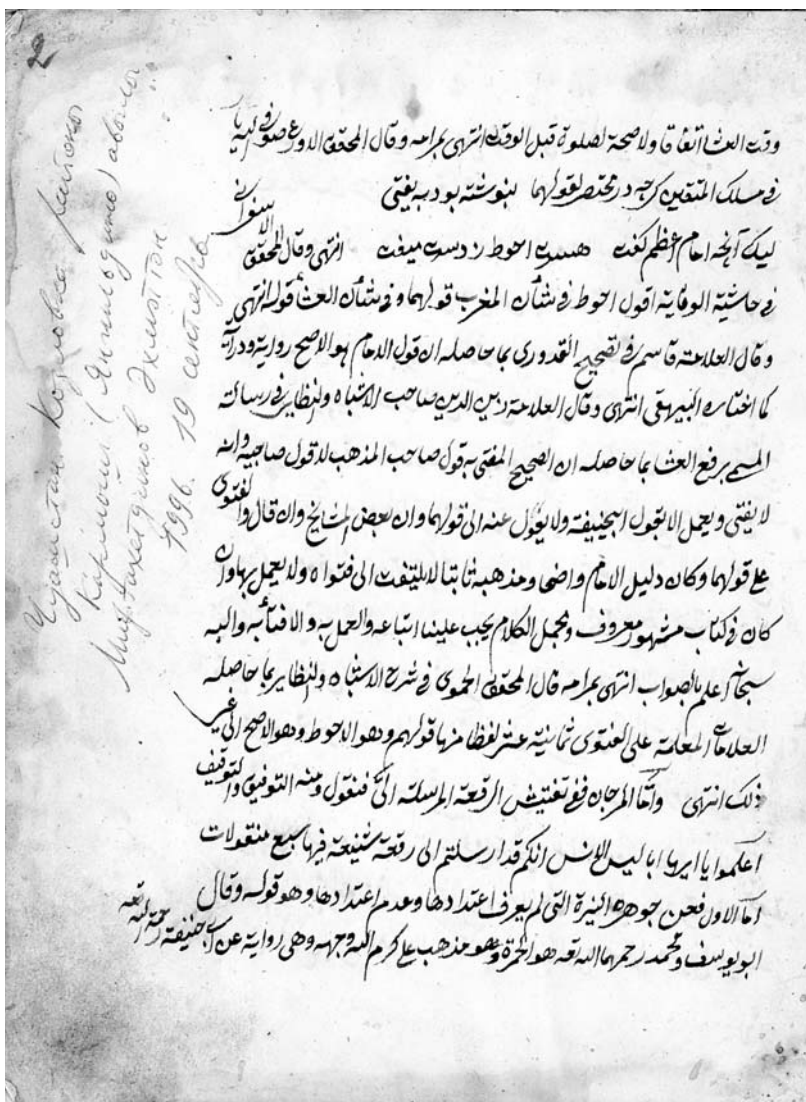 2
Чуашстан Козловка районы
Карамыш (Янгильдино) авылы
Миф
1996. 19 сентябрь
وقت العشا اتفاقا ولا صحة لصلوة قبل الوقت انتهى بمرامه وقال المحقق
في مسلك المتقين كرچه در مختصر لقولهما بنوشته بود به يفتى
ليك آنچه امام اعظم گفت هست احوط ز دست ميفت انتهى وقال المحقق
في حاشية الوقاية اقول احوط في شأن المغرب قولهما وفي شأن العشا قوله انتهى
وقال العلامة قاسم في تصحيح القدوري بما حاصله ان قول الامام هو الاصح رواية ودراية
كما اختاره البيهقي انتهى وقال العلامة زين الدين صاحب الاشباه والنظاير في رسالته
المسمى برفع العشا بما حاصله ان الصحيح المفتى به قول صاحب المذهب لا قول صاحبيه وانه
لا يفتى ويعمل الا بقول ابيحنيفة ولا يعول عنه الى قولهما وان بعض المشايخ وان قال والفتوى
على قولهما وكان دليل الامام واضحا ومذهبه ثابتا لا يلتفت الى فتواه ولا يعمل بها وان
كان في كتاب مشهور معروف ومجمل الكلام يجب علينا اتباعه والعمل به والافتأ به والله
سبحانه اعلم بالصواب انتهى بمرامه قال المحقق الحموى في شرح الاشباه والنظاير بما حاصله
العلامات المعلمة على الفتوى ثمانية عشر لفظا منها قولهم وهو الاحوط وهو الاصح الى غير
ذلك انتهى واما المرجان ففي تفتيش الرقعة المرسلة الى فنقول ومنه التوفيق والتوقيف
اعلموا يا ايها اباليس الانس انكم قد ارسلتم الى رقعة شنيعة فيها سبع منقولات
اما الاول فعن جوهرة النيرة التى لم يعرف اعتدادها وعدم اعتدادها وهو قوله وقال
ابو يوسف ومحمد رحمهما الله تعه هو الحمرة وهو مذهب على كرم الله وجهه وهى رواية عن ابى حنيفة رحمة الله تعه